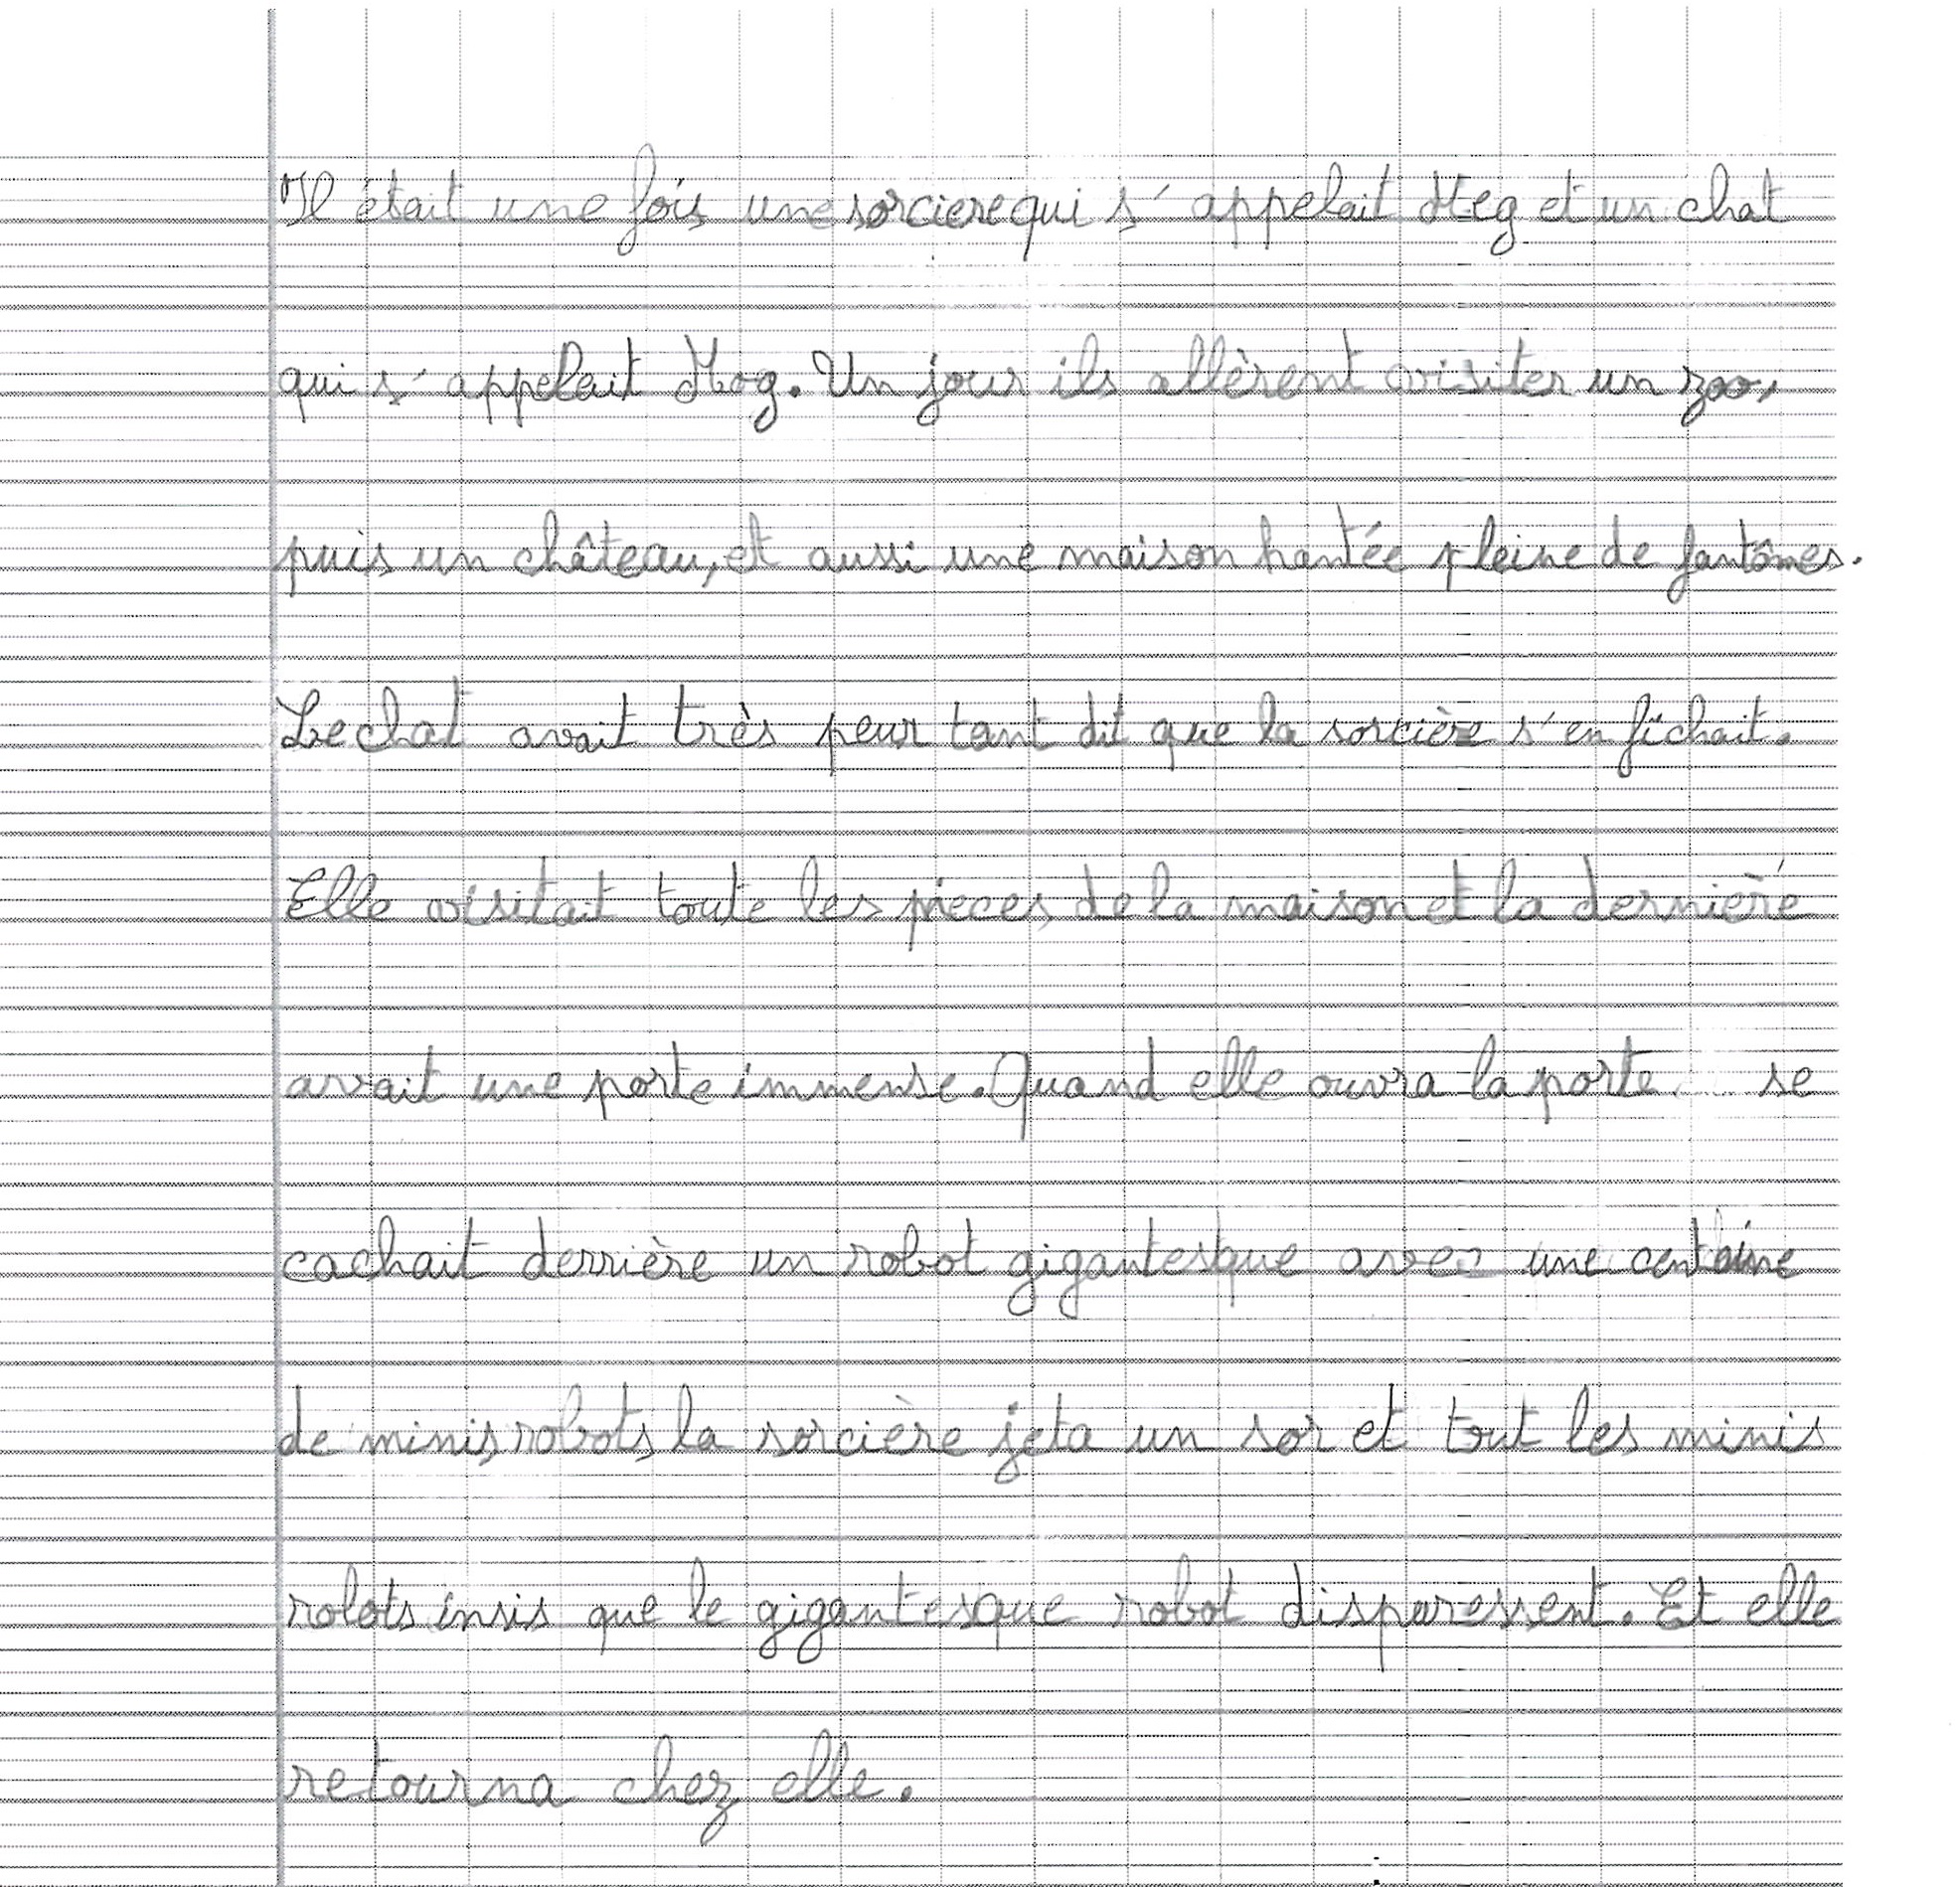 Il était une fois une sorciere qui s'appelait Meg et un chat
qui s'appelait Mog. Un jour ils allèrent visiter un zoo,
puis un château, et aussi une maison hantée pleine de fantômes.
Le chat avait très peur tant dit que la sorcière s'en fichait.
Elle visitait toute les pieces de la maison et la dernière
avait une porte immense. Quand elle ouvra la porte se
cachait derrière un robot gigantesque avec une centaine
de minis robots la sorcière jeta un sor et tout les minis
robots insis que le gigantesque robot disparessent. Et elle
retourna chez elle.